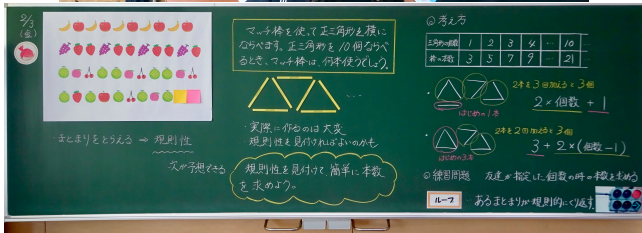 2/3
(金)
まとまりをとらえる ⇒ 規則性
次が予想できる
マッチ棒を使って正三角形を横に
ならべます。正三角形を10個ならべ
るとき、マッチ棒は、何本使うでしょう。
…
・実際に作るのは大変
規則性を見付ければよいのかも
規則性を見付けて、簡単に本数
を求めよう。
◎考え方
三角形の個数 1 2 3 4 … 10 …
棒の本数 3 5 7 9 … 21
2本を3回加えると3個
はじめの1本
2×個数+1
2本を2回加えると3個
はじめの3本
3+2×(個数-1)
◎練習問題 友達が指定した個数の時の本数を求める
ループ あるまとまりが規則的にくり返す